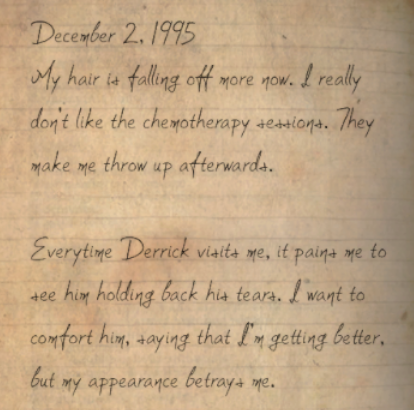 December 2, 1995
My hair is falling off more now. I really
don't like the chemotherapy sessions. They
make me throw up afterwards.
Everytime Derrick visits me, it pains me to
see him holding back his tears. I want to
comfort him, saying that I'm getting better,
but my appearance betrays me.